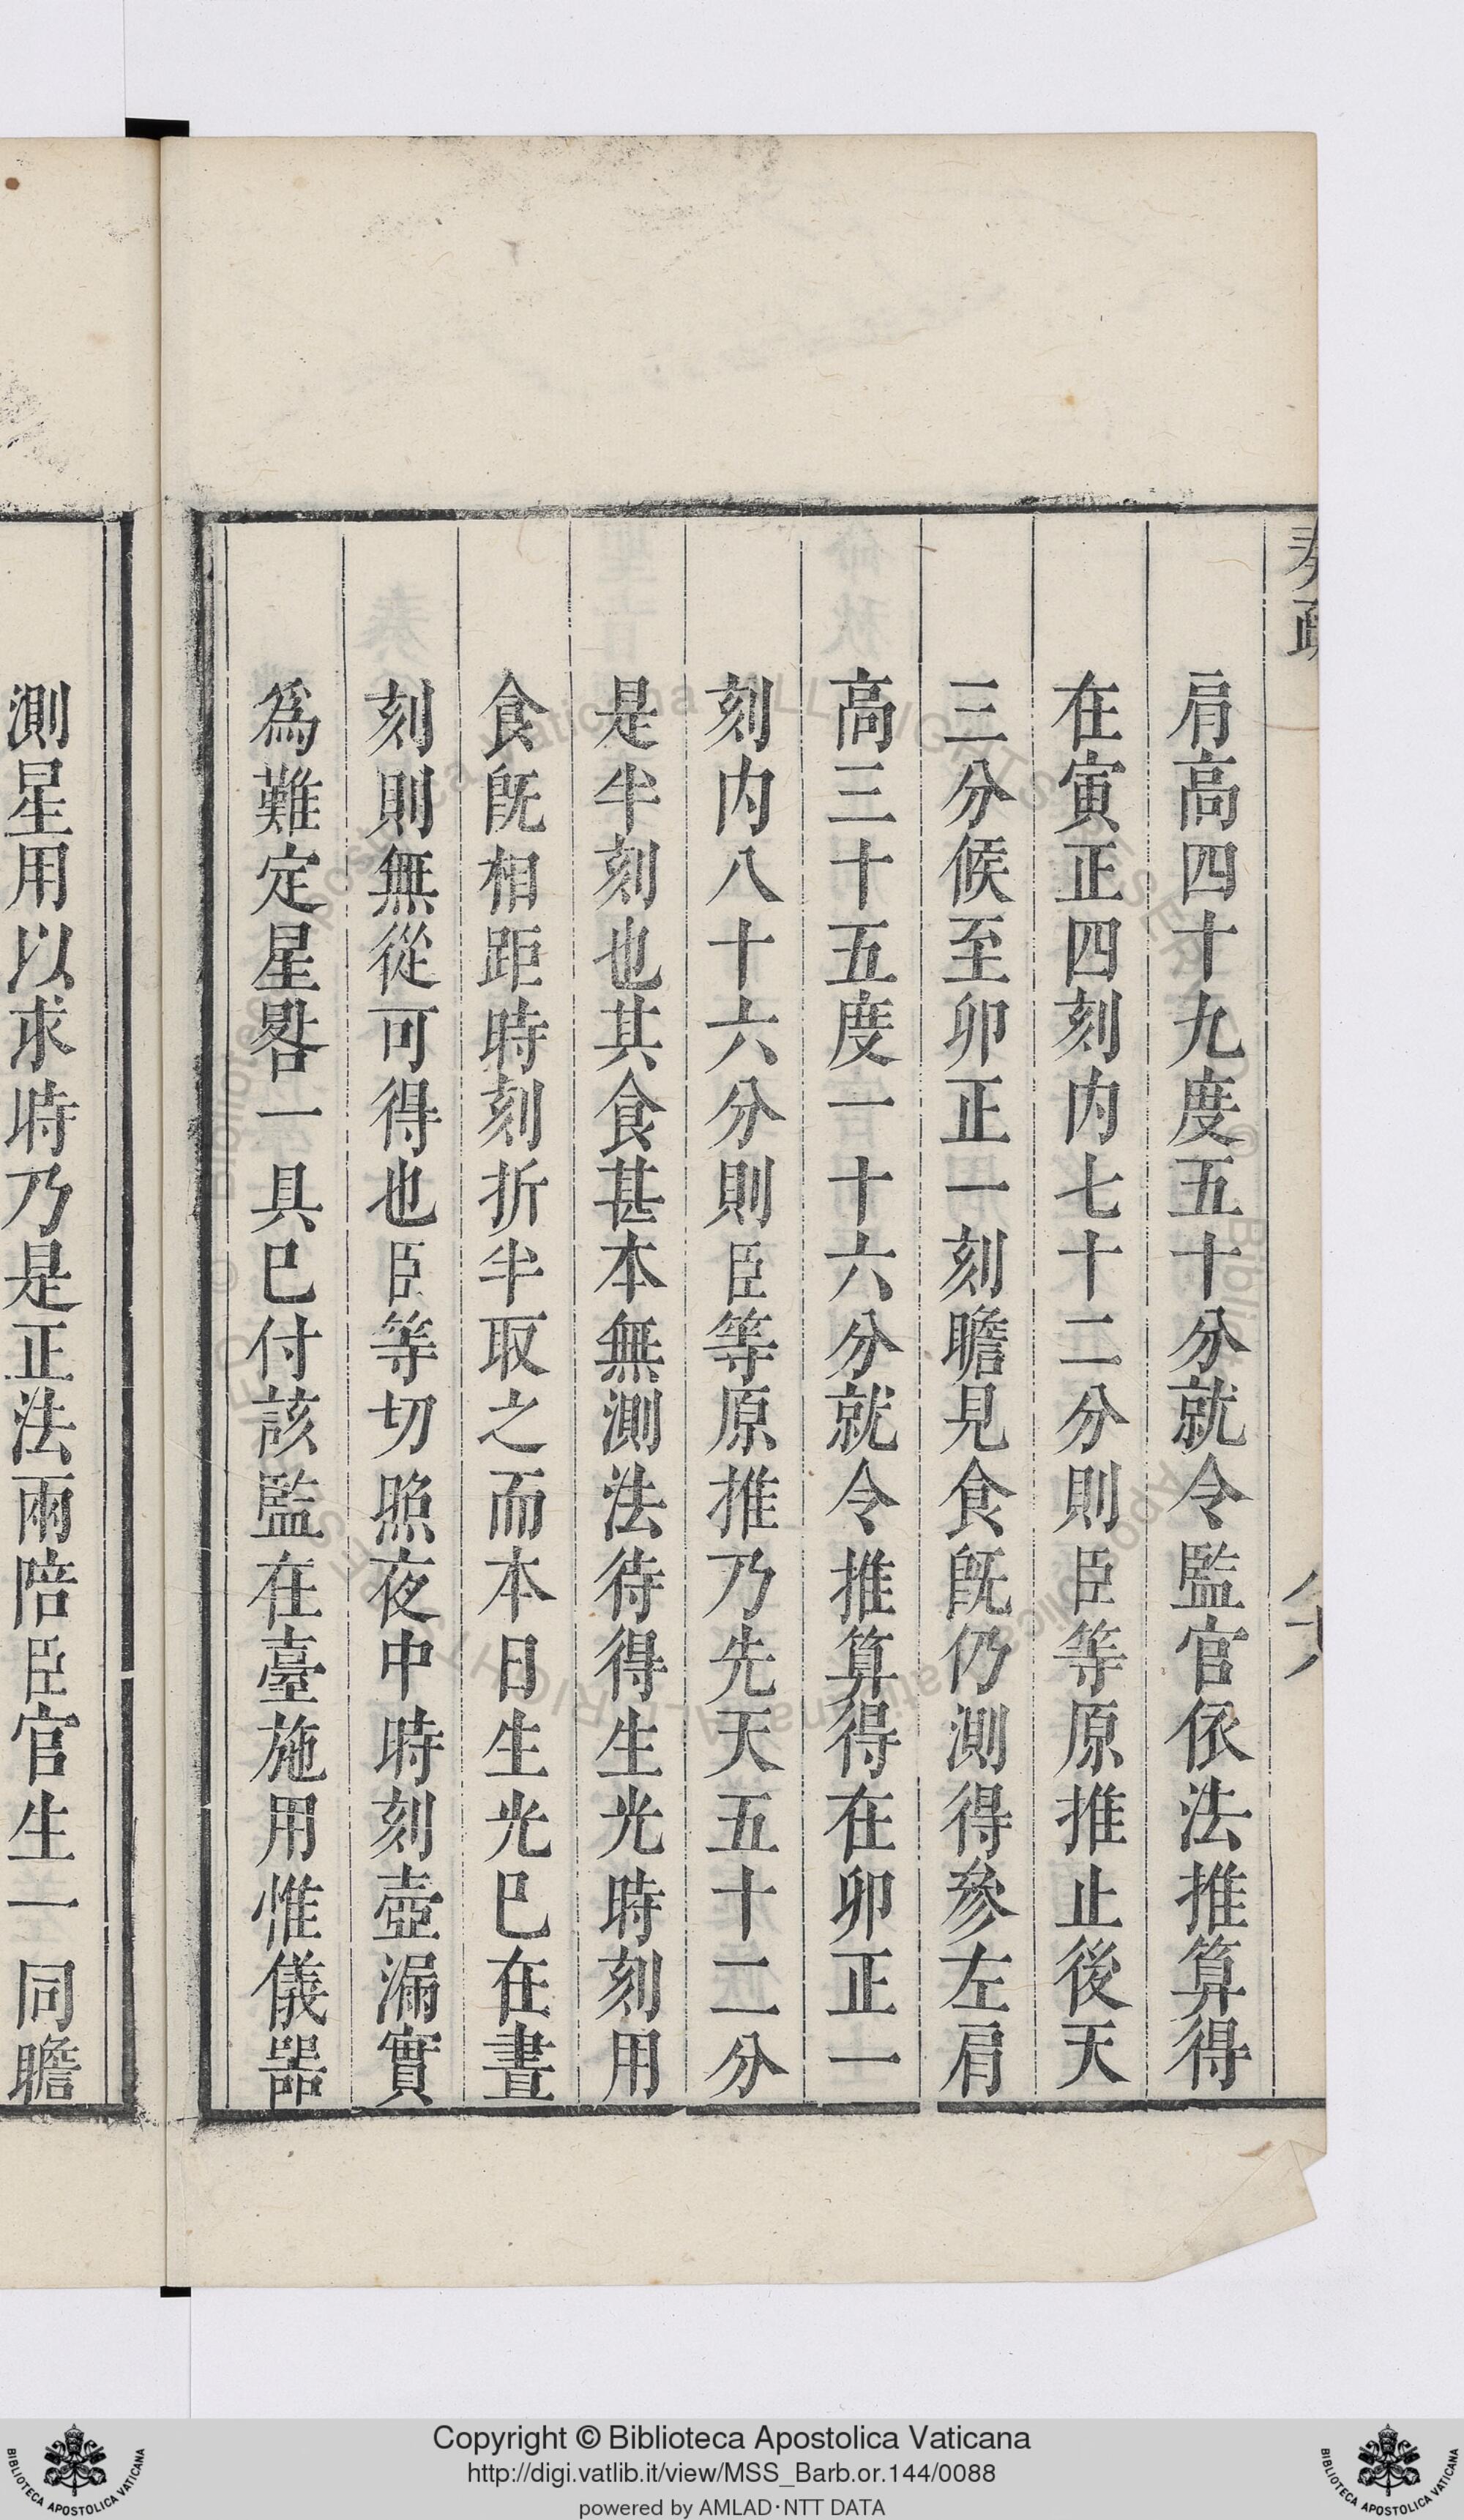 奏疏
肩高四十九度五十分就令監官依法推算得
在寅正四刻内七十二分則臣等原推止後天
三分候至卯正一刻瞻見食旣仍測得參左肩
高三十五度一十六分就令推算得在卯正一
刻内八十六分則臣等原推乃先天五十二分
是半刻也其食甚本無測法待得生光時刻用
食旣相距時刻折半取之而本日生光巳在晝
刻則無從可得也臣等切照夜中時刻壺漏實
爲難定星晷一具巳付該監在臺施用惟儀器
測星用以求時乃是正法兩陪臣官生一同瞻
Copyright © Biblioteca Apostolica Vaticana
http://digi.vatlib.it/view/MSS_Barb.or.144/0088
powered by AMLAD·NTT DATA
BIBLIOTECA APOSTOLICA VATICANA
BIBLIOTECA APOSTOLICA VATICANA